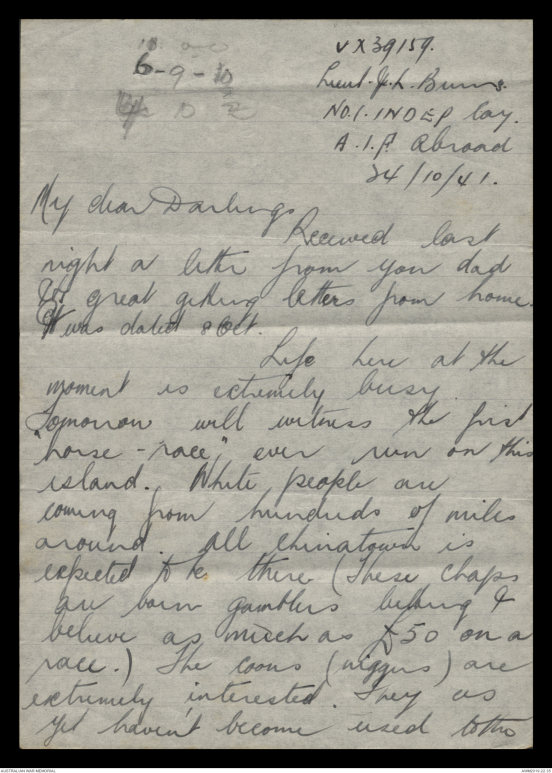 6-9-10
VX39159.
Lieut. J. L. Burns.
NO.1. INDEP Coy.
A.I.F Abroad
24/10/41.
My dear Darlings
Received last
night a letter from you dad
Its great getting letters from home.
It was dated 8 Oct.
Life here at the
moment is extremely busy.
Tomorrow will witness the first
"horse-race," ever run on this
island. White people are
coming from hundreds of miles
around. All Chinatown is
expected to be there (These chaps
are born gamblers betting I
believe as much as £50 on a
race.) The coons (niggers) are
extremely interested. They as
yet haven't become used to the
AUSTRALIAN WAR MEMORIAL